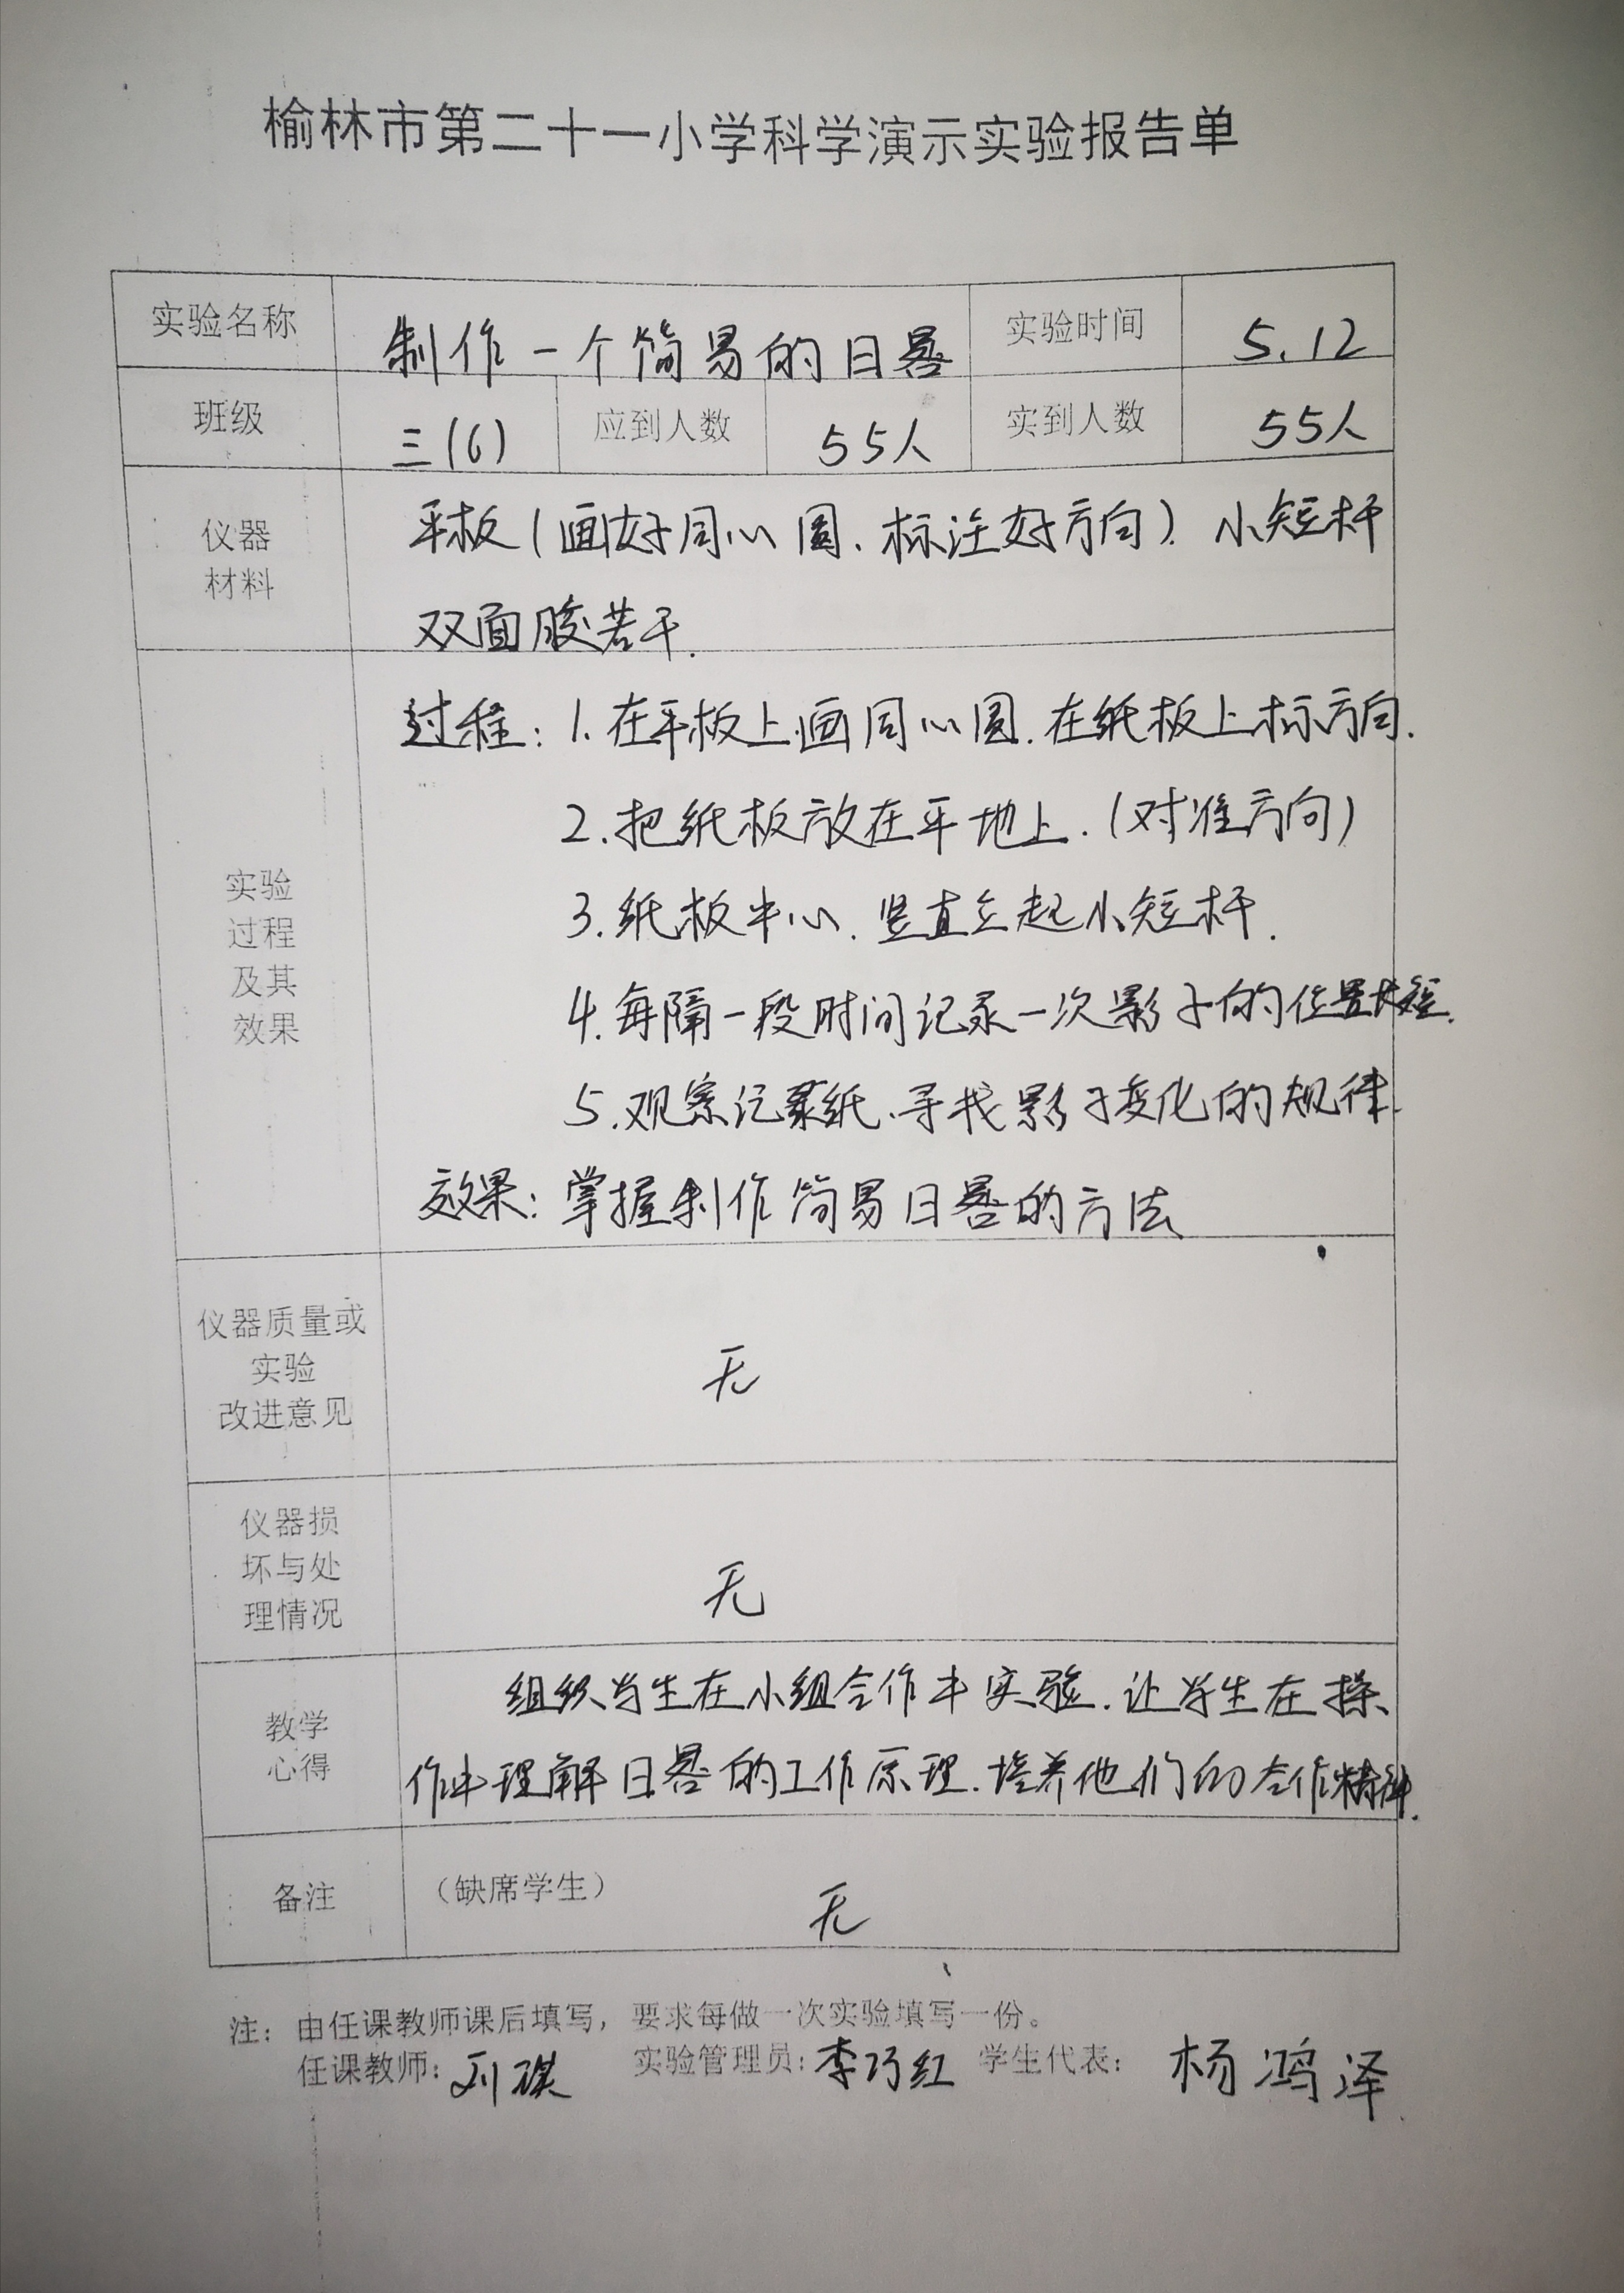 榆林市第二十一小学科学演示实验报告单
实验名称 制作一个简易的日晷 实验时间 5.12
班级 三(6) 应到人数 55人 实到人数 55人
仪器
材料
平板(画好同心圆、标注好方向)、小短杆
双面胶若干.
实验
过程
及其
效果
过程: 1.在平板上画同心圆.在纸板上标方向.
2.把纸板放在平地上.(对准方向)
3.纸板中心、竖直立起小短杆.
4.每隔一段时间记录一次影子的位置长短.
5.观察记录纸、寻找影子变化的规律.
效果: 掌握制作简易日晷的方法
仪器质量或
实验
改进意见
无
仪器损
坏与处
理情况
无
教学
心得
组织学生在小组合作中实验.让学生在操
作中理解日晷的工作原理.培养他们的合作精神.
备注 (缺席学生) 无
注: 由任课教师课后填写, 要求每做一次实验填写一份。
任课教师: 刘祺 实验管理员: 李巧红 学生代表: 杨鸿泽